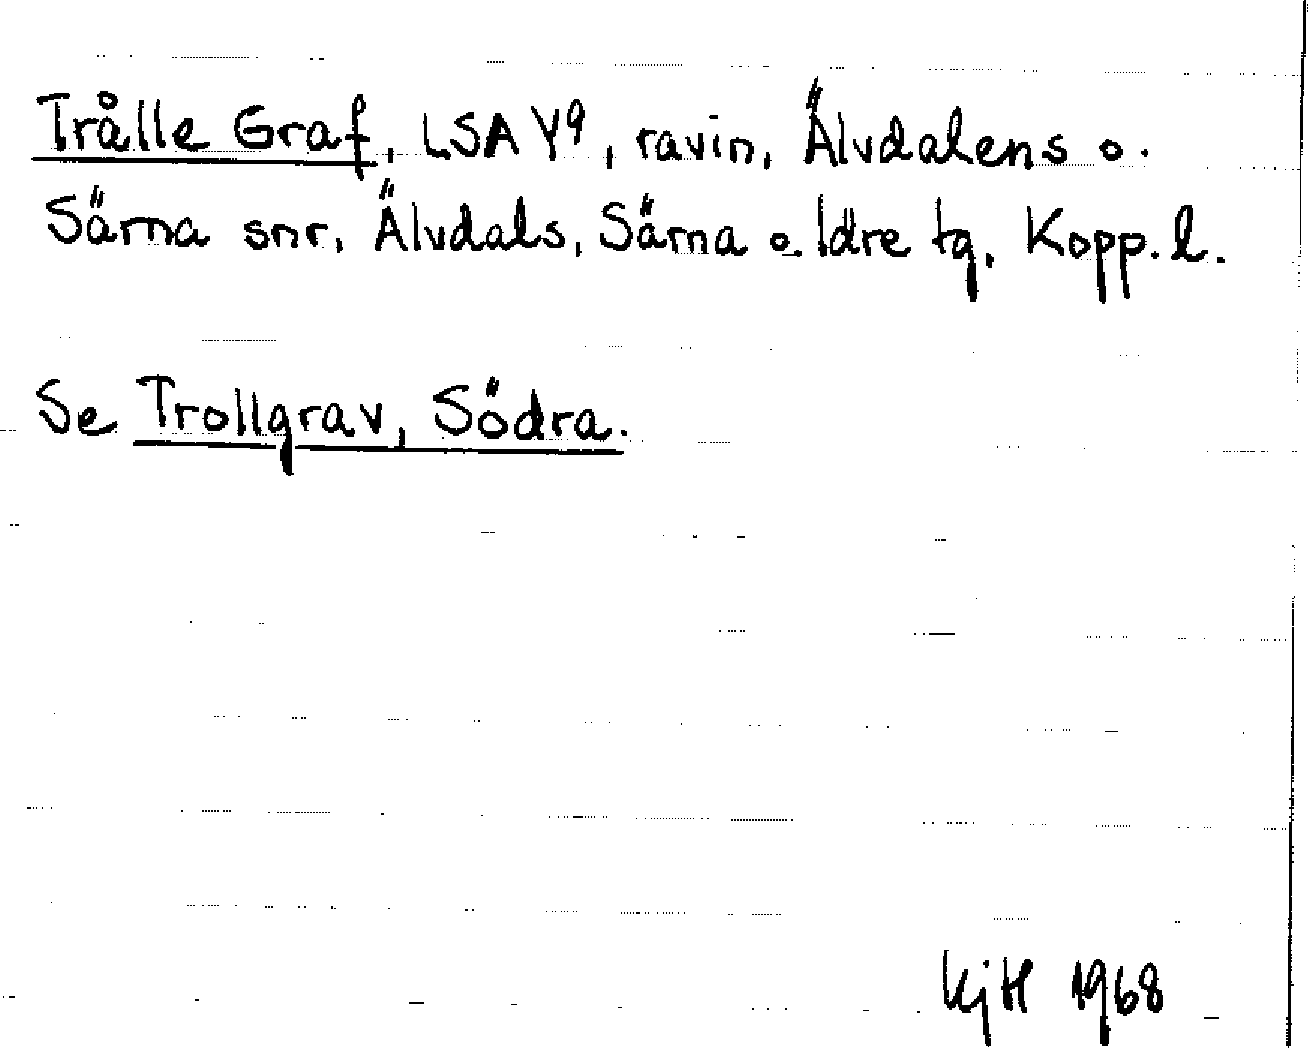 Trålle Graf, LSA Y9, ravin, Älvdalens o.
Särna snr, Älvdals, Särna o. Idre tg, Kopp. l.
Se Trollgrav, Södra.
KjH 1968